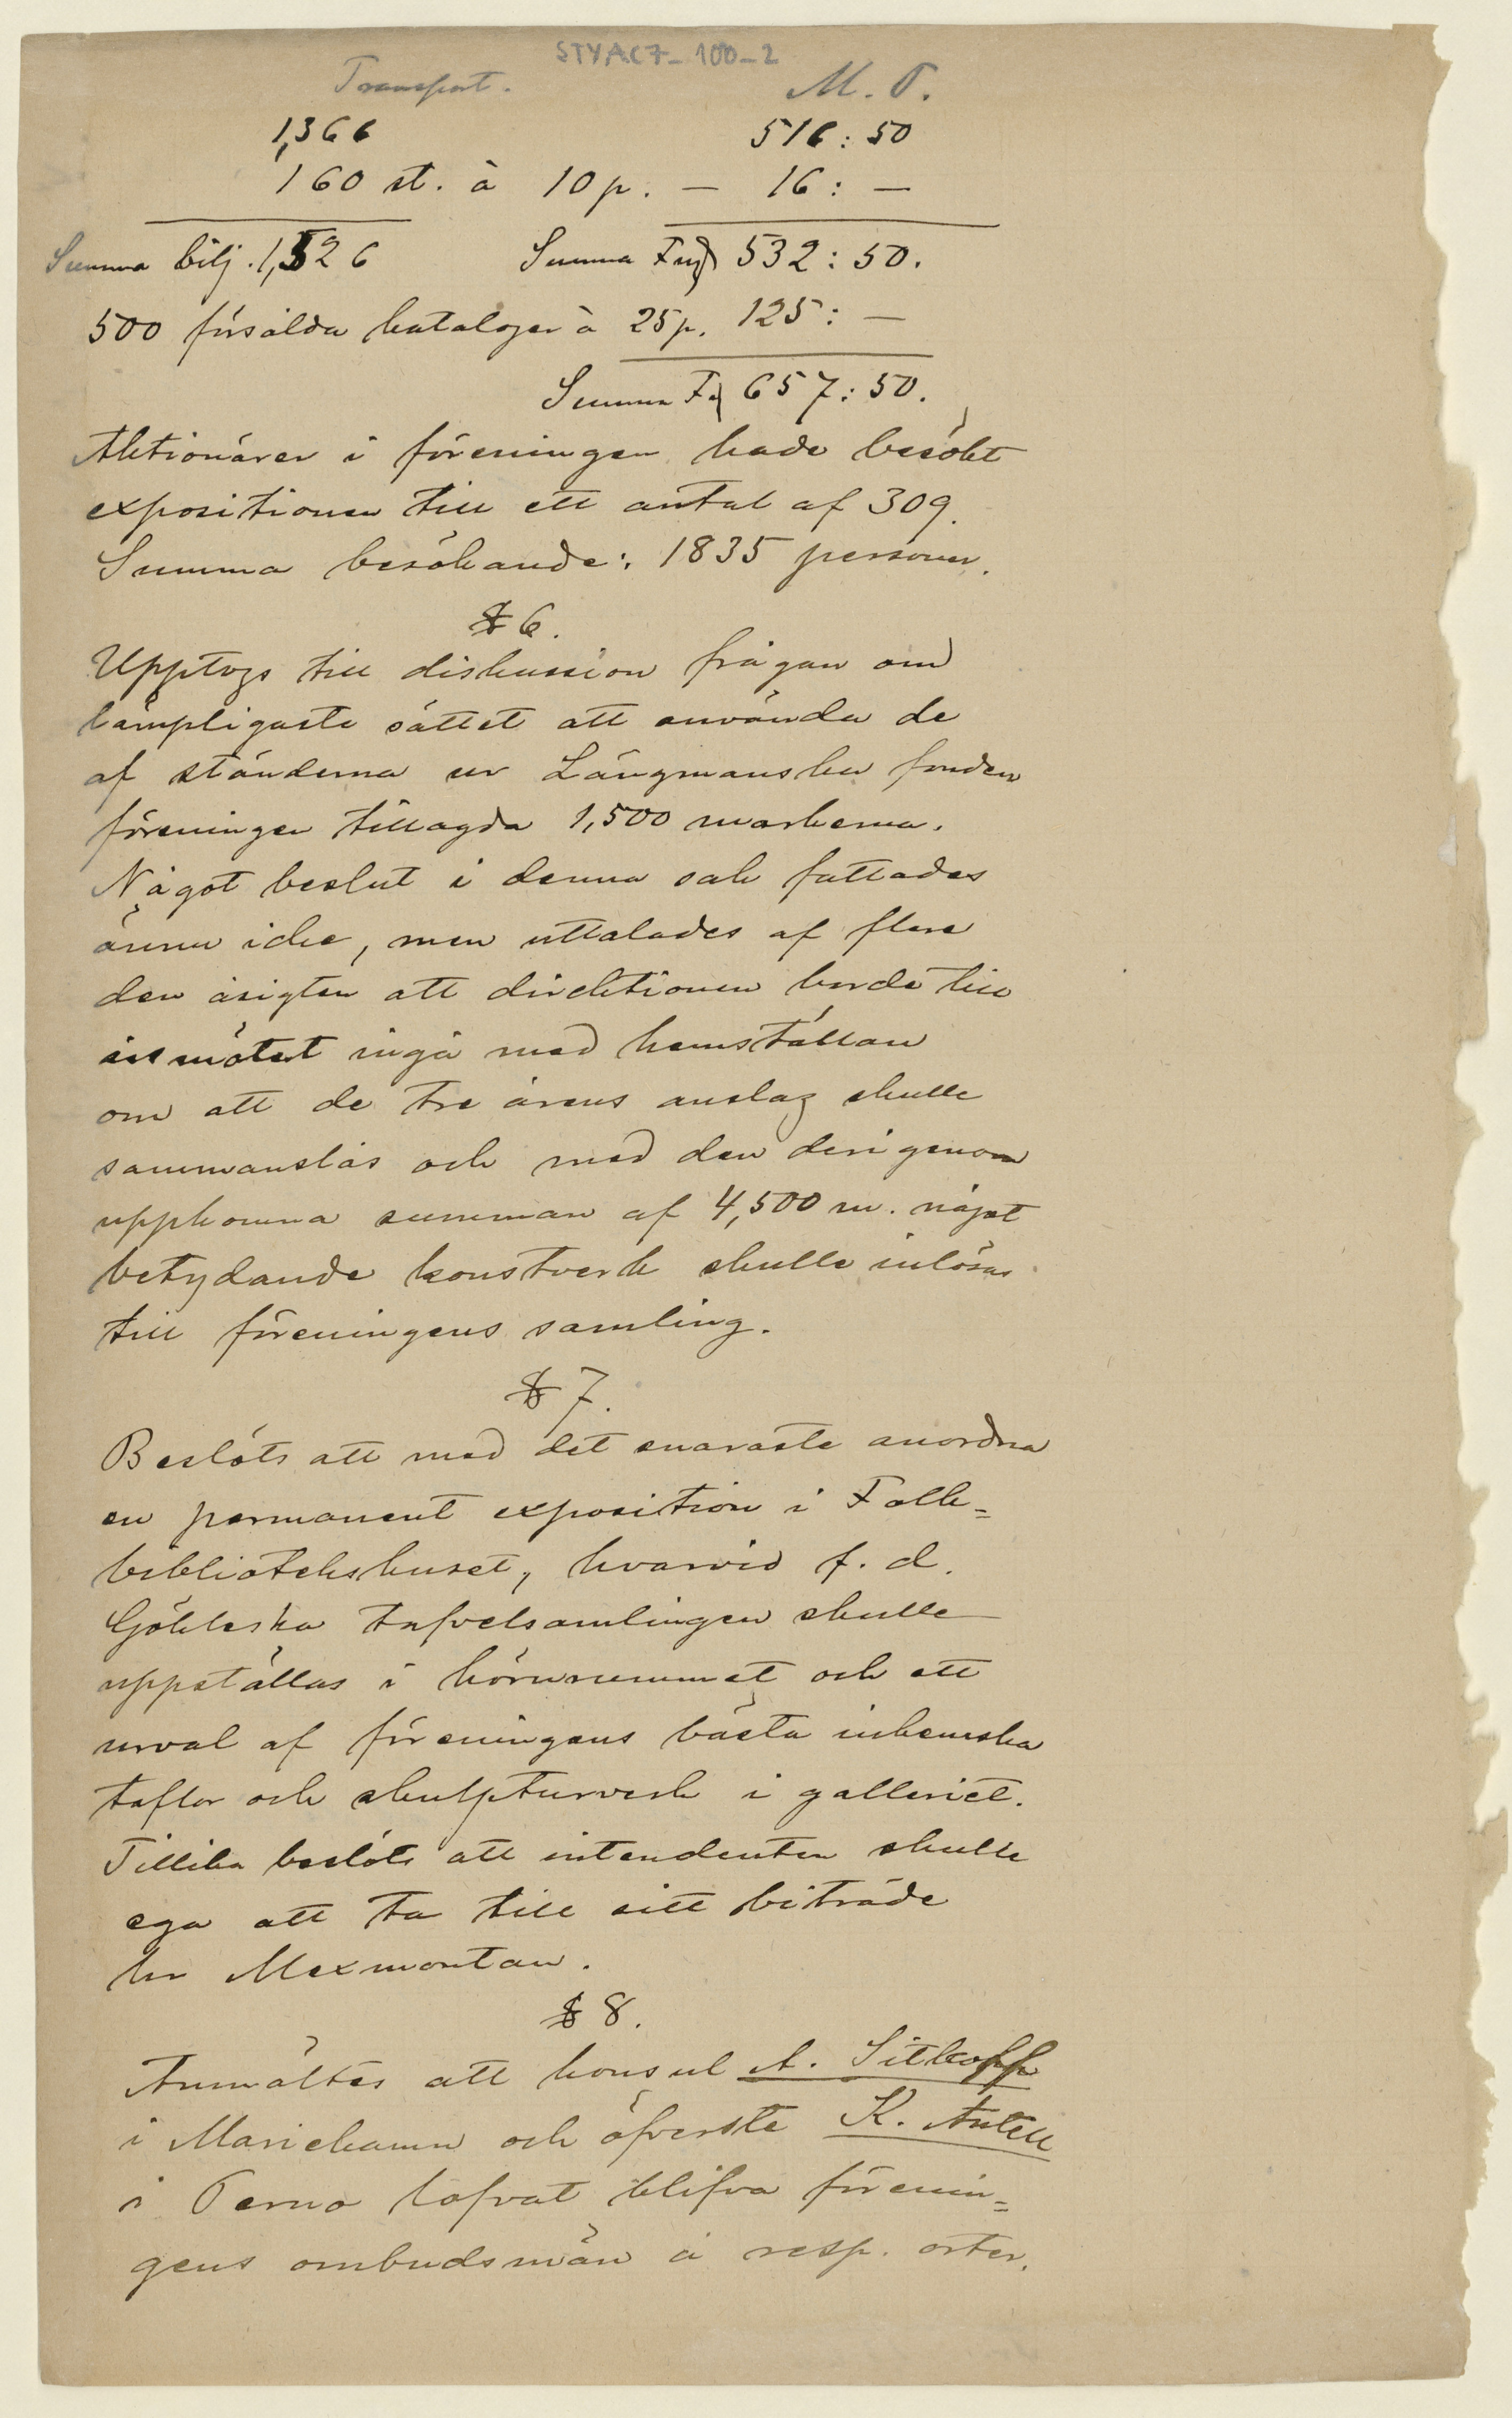 STYAC7_100_2
Transport. M. P.
1,366 516: 50
160 st. à 10 p. — 16: —
Summa bilj. 1,526 Summa Fmk 532: 50.
500 försålda kataloger à 25 p. 125: —
Summa Fmk 657: 50.
Aktionärer i föreningen hade besökt
expositionen till ett antal af 309.
Summa besökande: 1835 personer.
§ 6.
Upptogs till diskussion frågan om
lämpligaste sättet att använda de
af ständerna ur Längmanska fonden
föreningen tillagda 1,500 markerna.
Något beslut i denna sak fattades
ännu icke, men uttalades af flere
den åsigten att direktionen borde till
årsmötet ingå med hemställan
om att de tre årens anslag skulle
sammanslås och med den derigenom
uppkomna summan af 4,500 m. något
betydande konstverk skulle inlösas
till föreningens samling.
§ 7.
Beslöts att med det snaraste anordna
en permanent exposition i Folk-
bibliotekshuset, hvarvid f. d.
Göhleska tafvelsamlingen skulle
uppställas i hörnrummet och ett
urval af föreningens bästa inhemska
taflor och skulpturverk i galleriet.
Tillika beslöts att intendenten skulle
ega att ta till sitt biträde
hr Mexmontan.
§ 8.
Anmältes att konsul A. Sitkoff
i Mariehamn och öfverste K. Antell
i Perno lofvat blifva förenin-
gens ombudsmän å resp. orter.